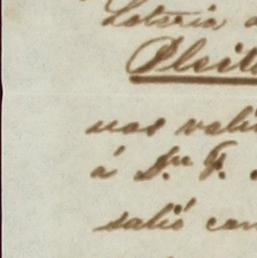 Loteria d
Pleito
uas vali
á D.n F.
salió con